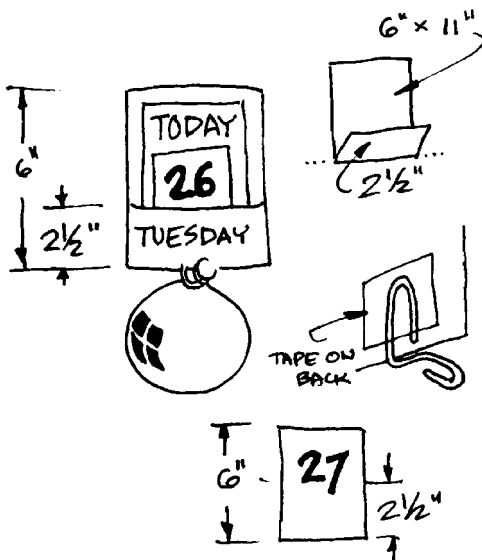 6" × 11"
TODAY
6"
26
2½"
2½"
TUESDAY
TAPE ON
BACK
6"
27
2½"